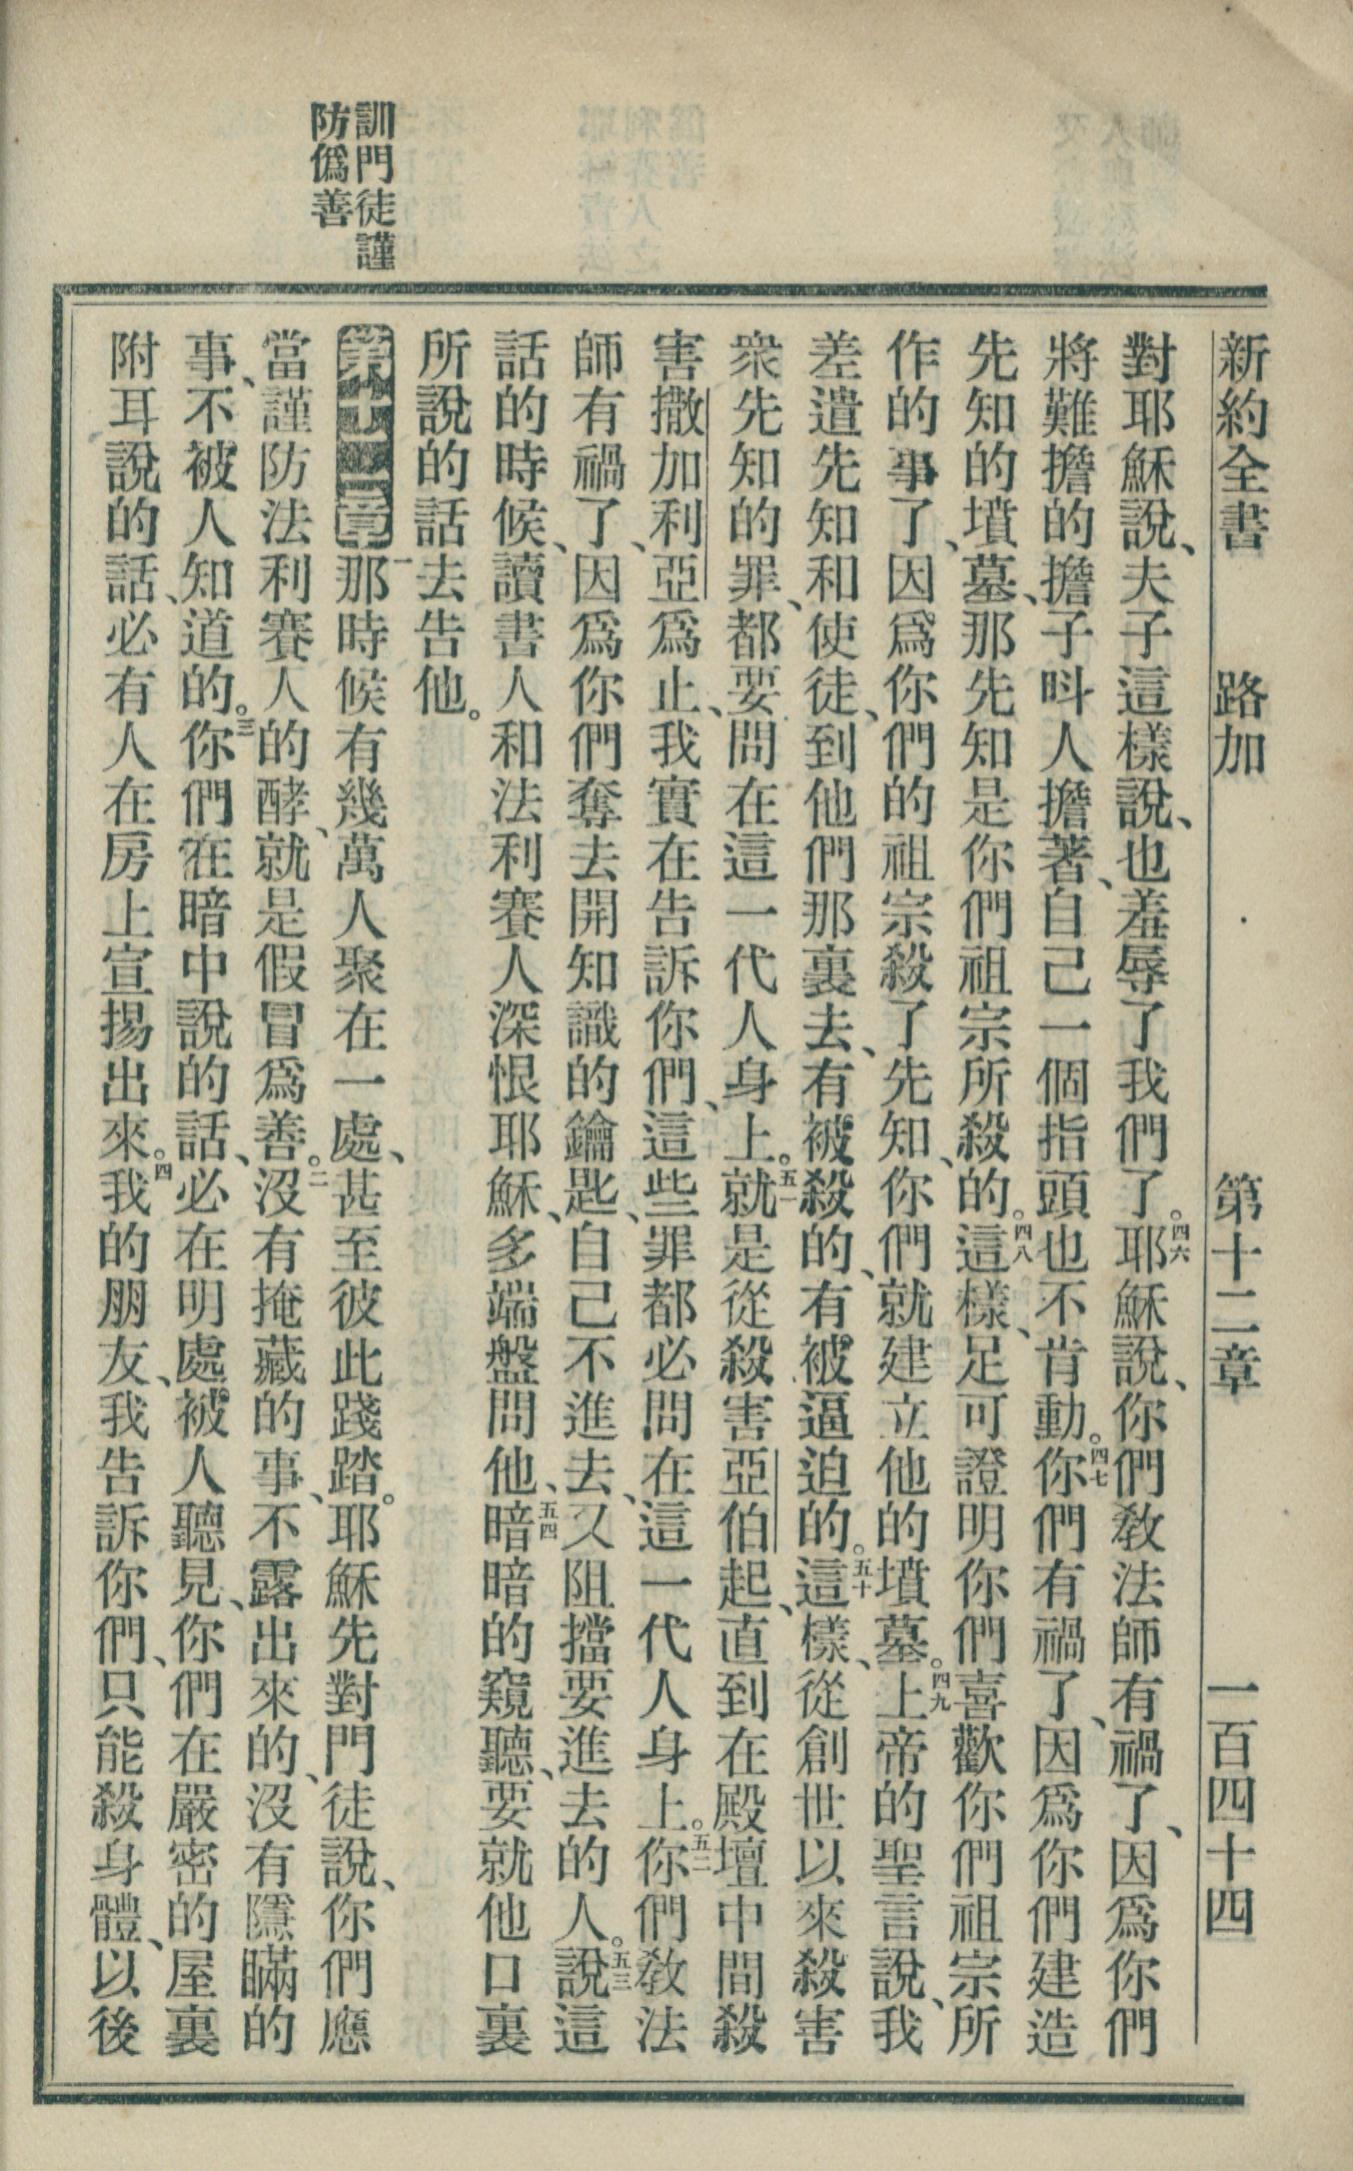 新約全書 路加 第十二章 一百四十四
對耶穌說、夫子這樣說、也羞辱了我們了。四六耶穌說、你們敎法師有禍了、因爲你們
將難擔的擔子呌人擔著、自己一個指頭也不肯動。四七你們有禍了、因爲你們建造
先知的墳墓、那先知是你們祖宗所殺的。四八這樣、足可證明你們喜歡你們祖宗所
作的事了、因爲你們的祖宗殺了先知、你們就建立他的墳墓。四九上帝的聖言說、我
差遣先知和使徒、到他們那裏去、有被殺的、有被逼迫的。五十這樣、從創世以來殺害
衆先知的罪、都要問在這一代人身上。五一就是從殺害亞伯起、直到在殿壇中間殺
害撒加利亞爲止、我實在告訴你們、這些罪都必問在這一代人身上。五二你們敎法
師有禍了、因爲你們奪去開知識的鑰匙、自己不進去、又阻擋要進去的人。五三說這
話的時候、讀書人和法利賽人深恨耶穌、多端盤問他、五四暗暗的窺聽、要就他口裏
所說的話去告他。
訓門徒謹
防僞善
第十二章 一那時候有幾萬人聚在一處、甚至彼此踐踏。耶穌先對門徒說、你們應
當謹防法利賽人的酵、就是假冒爲善。二沒有掩藏的事、不露出來的、沒有隱瞞的
事、不被人知道的。三你們在暗中說的話、必在明處被人聽見、你們在嚴密的屋裏
附耳說的話、必有人在房上宣揚出來。四我的朋友、我告訴你們、只能殺身體、以後